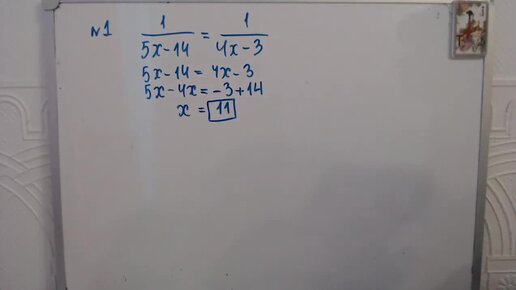 №1 1/(5x-14) = 1/(4x-3)
5x-14 = 4x-3
5x-4x = -3+14
x = 11